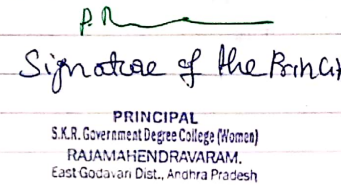 Signature of the Princi
PRINCIPAL
S.K.R. Government Degree College (Women)
RAJAMAHENDRAVARAM.
East Godavari Dist., Andhra Pradesh